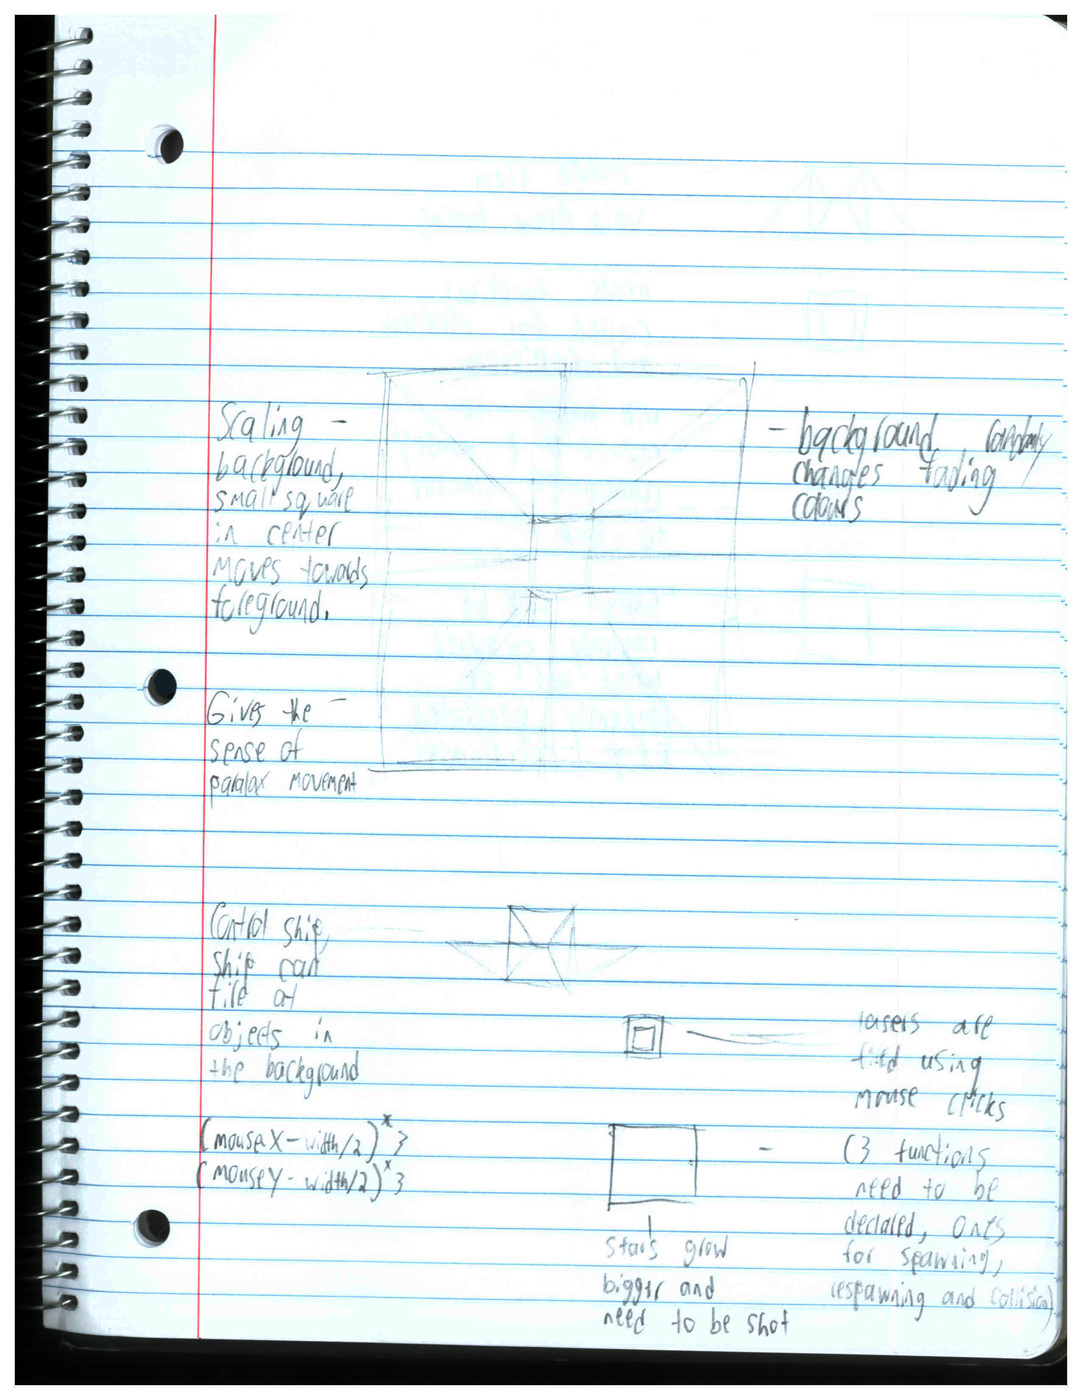 Scaling -
background,
small square
in center
moves towards
foreground.
- background randomly
changes fading
colours
Gives the -
sense of
paralax movement
Control ship,
ship can
fire at
objects in
the background
lasers are
fired using
mouse clicks
(mouseX-width/2)*3
(mouseY-width/2)*3
- (3 functions
need to be
declared, ones
for spawning,
respawning and collision)
stars grow
bigger and
need to be shot